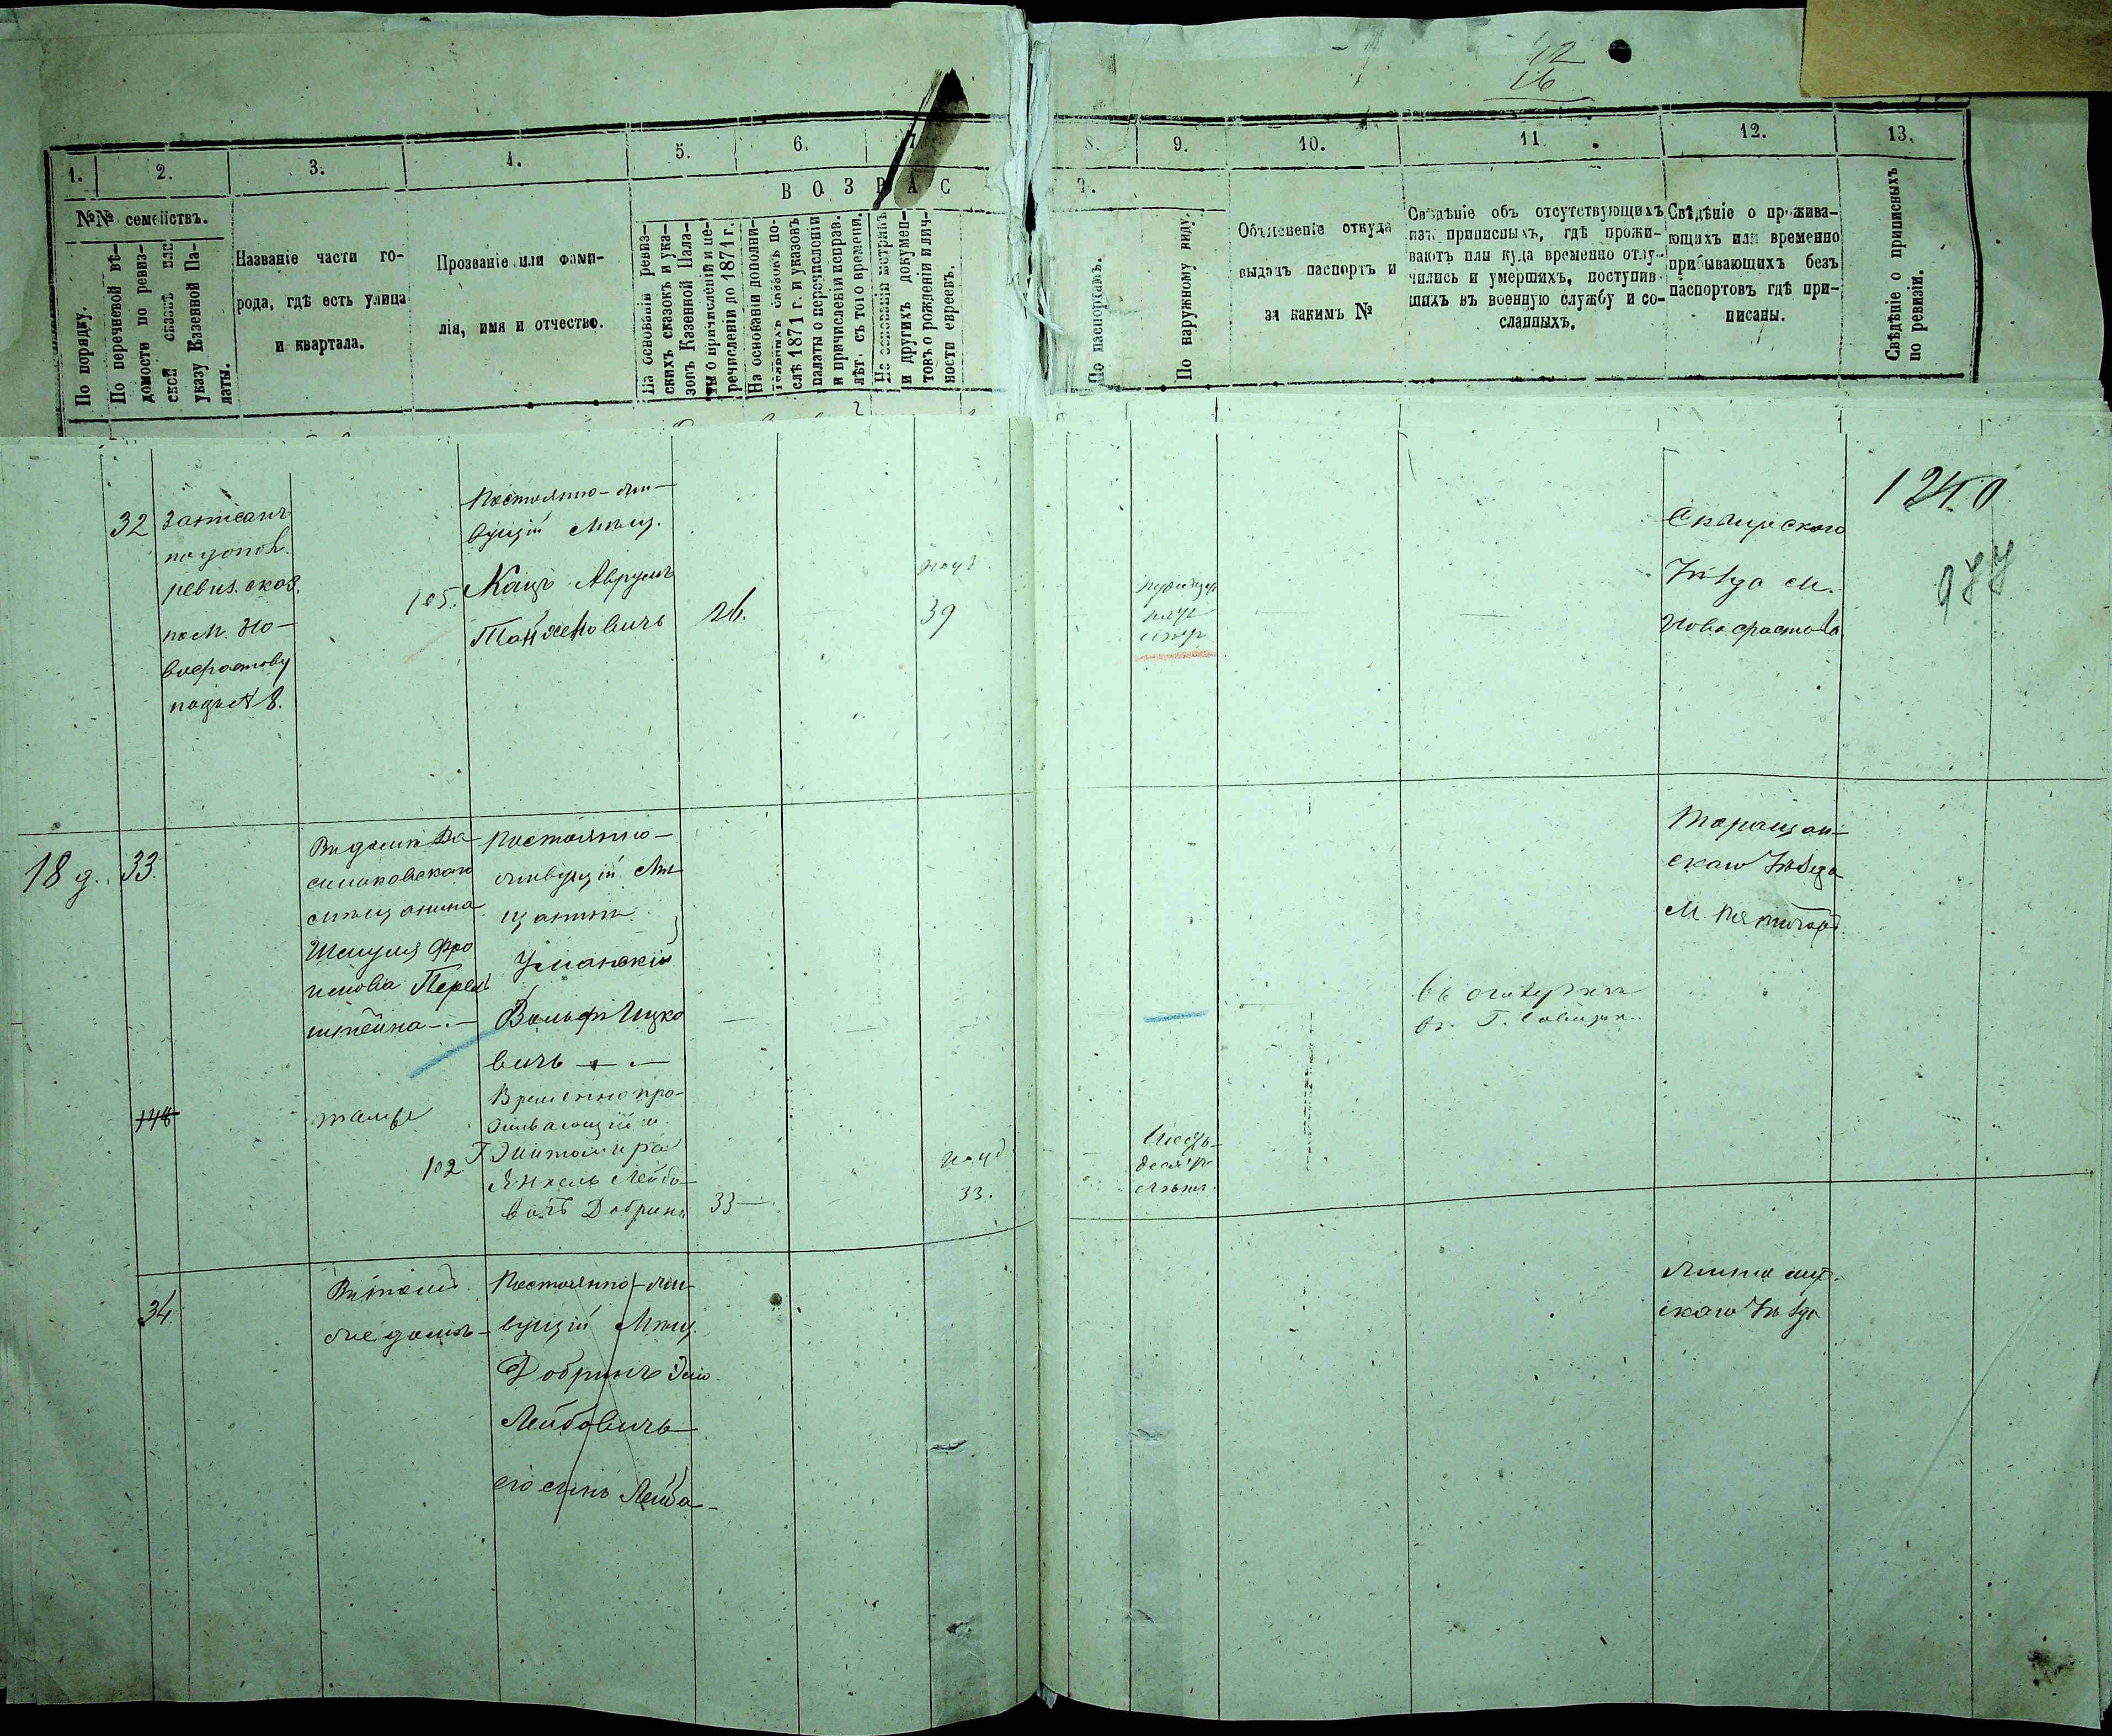 42
16
1.
2.
3.
4.
5.
6.
7.
8.
9.
10.
11.
12.
13.
ВОЗРАС
Т.
№№ семействъ.
По порядку.
По перечневой вѣ-
домости по ревиз-
ской сказкѣ или
указу Казенной Па-
латы.
Названіе части го-
рода, гдѣ есть улица
и квартала.
Прозваніе или фами-
лія, имя и отчество.
На основаніи ревиз-
скихъ сказокъ и ука-
зовъ Казенной Пала-
ты о причисленіи и пе-
речисленіи до 1871 г.
На основаніи дополни-
тельныхъ сказокъ по-
слѣ 1871 г. и указовъ
палаты о перечисленіи
и причисленіи исправ.
лѣт. съ того времени.
На основаніи метрикъ
и другихъ докумен-
товъ о рожденіи и лич-
ности евреевъ.
По паспортамъ.
По наружному виду.
Объясненіе откуда
выданъ паспортъ и
за какимъ №
Свѣдѣніе объ отсутствующихъ
изъ приписныхъ, гдѣ прожи-
ваютъ или куда временно отлу-
чились и умершихъ, поступив-
шихъ въ военную службу и со-
сланныхъ.
Свѣдѣніе о прожива-
ющихъ или временно
прибывающихъ безъ
паспортовъ гдѣ при-
писаны.
Свѣдѣніе о приписныхъ
по ревизіи.
32
Записанъ
по допол.
ревиз. сказ.
по м. Но-
вофастову
подъ № 8.
105.
Постоянно-жи-
вущій Мѣщ.
Кацъ Аврумъ
26.
39
Сквирскаго
Уѣзда М.
Новофастова
1240
977
18 д.
33.
Въ домѣ Ва-
сильковскаго
мѣщанина
Шмуля Фро
имова Перель
штейна
Постоянно-
живущій Мѣ
щанинъ
Уманскій
Вольфъ Ицко
вичъ
въ
въ Г.
Таращан-
скаго Уѣзда
М.
148
тамъ же
102
Временно про-
живающій
Житомира
Янкель Лейбо-
вичъ Добринъ
33
33.
34.
Въ томъ
же домѣ
Постоянно-жи-
вущій Мѣщ.
Добринъ
Лейбовичъ
его сынъ Лейба
скаго Уѣзда